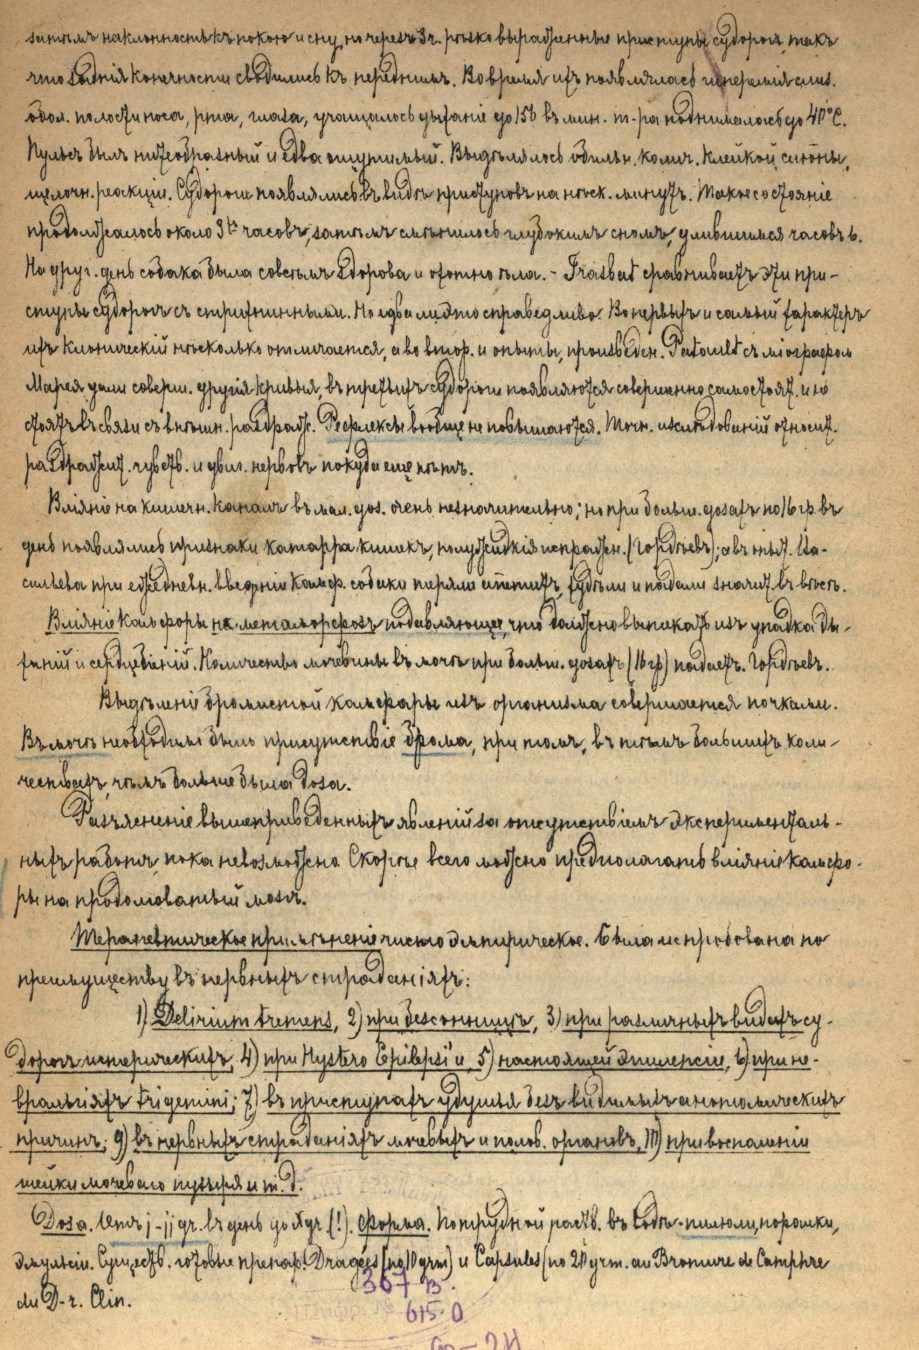 затѣмъ наклонность къ покою и сну, но черезъ 3 ч. рѣзко выраженные приступы судорогъ, такъ
что заднія конечности сводились къ переднимъ. Во время ихъ появлялась гиперемія слиз.
обол. полости носа, рта, глаза, учащалось дыханіе до 156 въ мин. т-ра поднималась до 40°C.
Пульсъ былъ нитеобразный и едва ощутимый. Выдѣлялось обильн. колич. клейкой слюны,
щелочн. реакціи. Судороги появлялись въ видѣ приступовъ на нѣск. минутъ. Такое состояніе
продолжалось около 3хъ часовъ, затѣмъ смѣнилось глубокимъ сномъ, длившимся часовъ 6.
На друг. день собака была совсѣмъ здорова и охотно ѣла. - Trasbot сравниваетъ эти при-
ступы судорогъ съ стрихнинными. Но едва ли это справедливо. Во первыхъ и самый характеръ
ихъ клоническій нѣсколько отличается, а во втор. и опыты, произведен. Patault съ міографом
Марея дали соверш. другія кривыя, въ третьихъ судороги появляются совершенно самостоят. и не
стоятъ въ связи съ внѣшн. раздраж. Рефлексы вообще не повышаются. Точн. изслѣдованій относит.
раздражит. чувств. и двиг. нервовъ покуда еще нѣтъ.
Вліяніе на кишечн. каналъ въ мал. доз. очень незначительно; но при больш. дозахъ по 16 гр. въ
день появлялись признаки катарра кишекъ, полужидкія испражн. (Гордѣевъ); а въ опыт. Ва-
сильева при ежедневн. введеніи камф. собаки теряли апетитъ, худѣли и падали значит. въ вѣсѣ.
Вліяніе камфоры на метаморфозъ подавляющее, что должно вытекать изъ упадка ды-
ханій и сердцебіеній. Количество мочевины въ мочѣ при больш. дозахъ (16 гр) падаетъ. Гордѣевъ.
Выдѣленіе бромистой камфары изъ организма совершается почками.
Въ мочѣ необходимо быть присутствіе брома, при томъ, въ тѣмъ большихъ коли-
чествахъ, чѣмъ больше была доза.
Разъясненіе вышеприведенныхъ явленій за отсутствіемъ эксперименталь-
ныхъ работъ, пока невозможно. Скорѣе всего можно предполагать вліяніе камфо-
ры на продолговатый мозгъ.
Терапевтическое примѣненіе чисто эмпирическое. Была испробована по
преимуществу въ нервныхъ страданіяхъ:
1) Delirium tremens, 2) при безсонницѣ, 3) при различныхъ видахъ су-
дорогъ истерическихъ, 4) при Hystero Epilepsi'и, 5) настоящей эпилепсіи, 6) при не-
вральгіяхъ trigemini; 7) въ приступахъ удушья безъ видимыхъ анатомическихъ
причинъ; 9) въ нервныхъ страданіяхъ мочевыхъ и полов. органовъ, 10) при воспаленіи
шейки мочеваго пузыря и т. д.
Доза. Отъ j-jj gr. въ день до X gr. (!). Форма. По трудной раств. въ водѣ - пилюли, порошки,
эмульсіи. Существ. готовые препар. Dragées (по 10 grm) и Capsules (по 20 grm. au Bromure de Camphre
du D-r. Clin.
367 В.
615.0